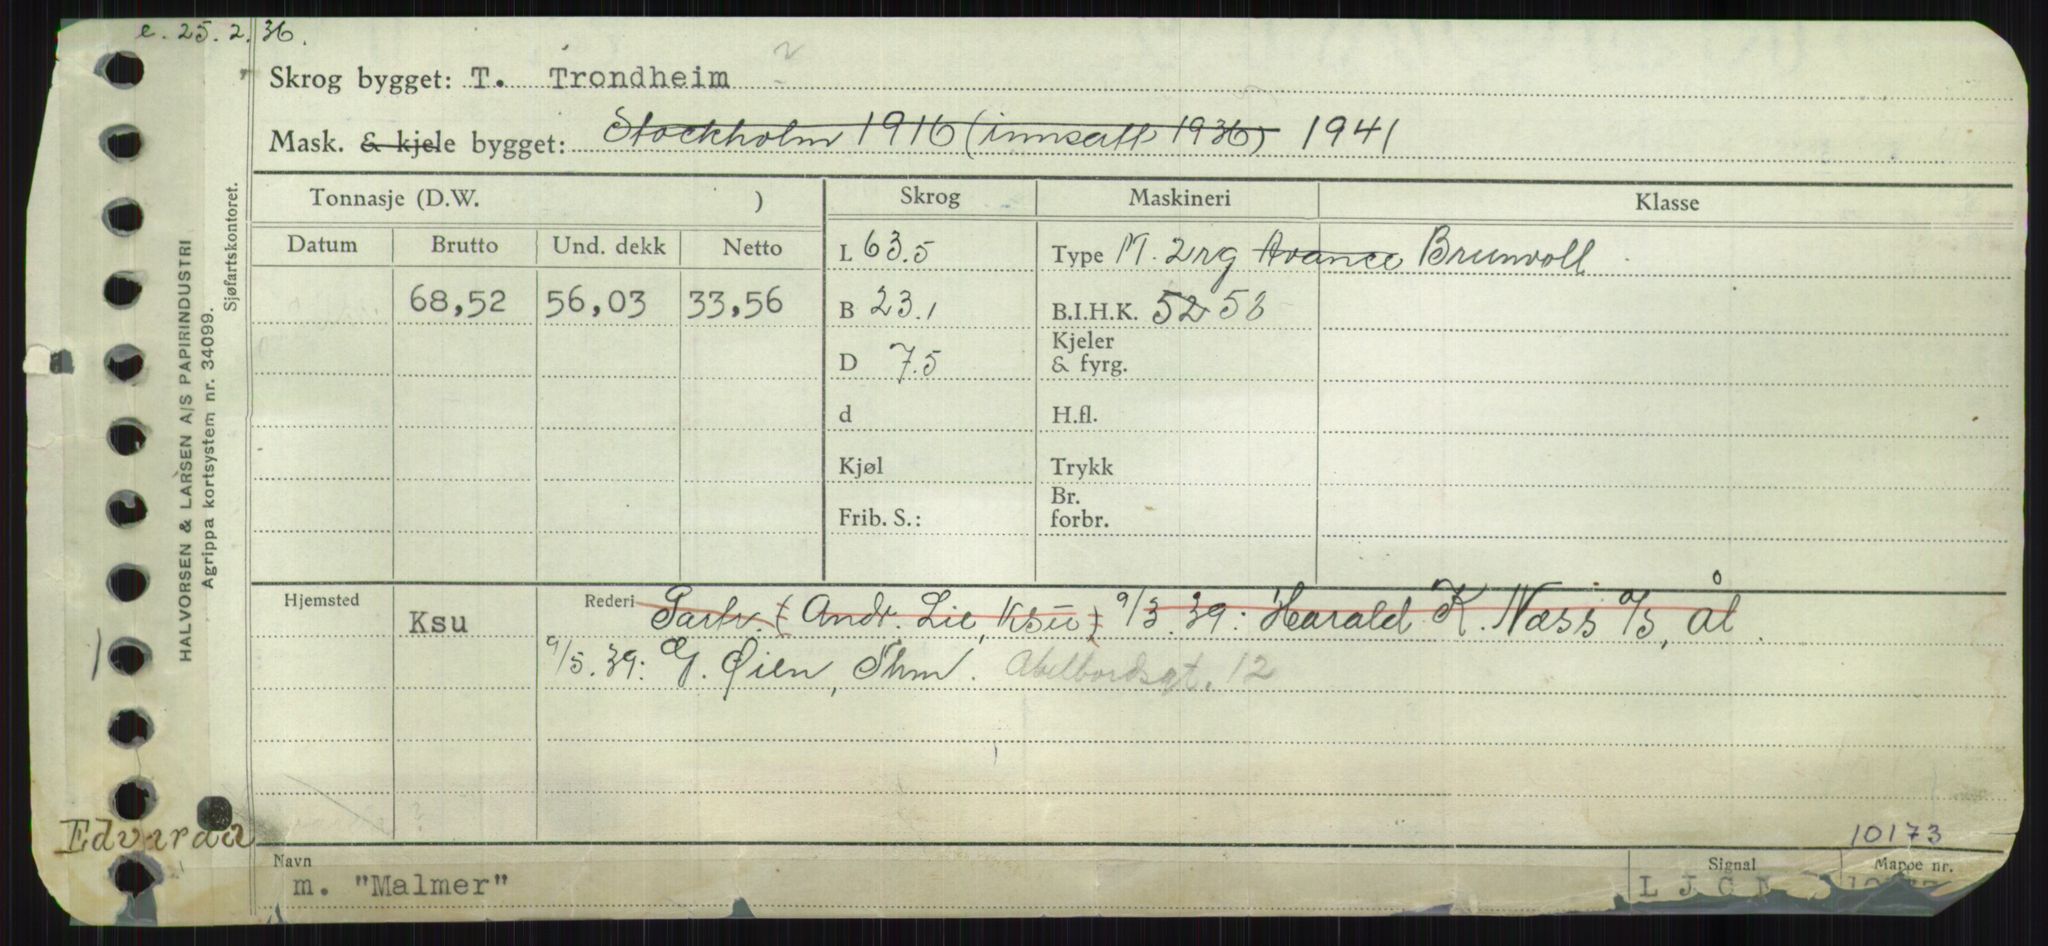 e. 25.2.36.
Skrog bygget: T. Trondheim
Mask. & kjele bygget: Stockholm 1916 (innsatt 1936) 1941
Tonnasje (D.W. ) Skrog Maskineri Klasse
Datum Brutto Und. dekk Netto
L 63.5 Type M. 2rg Avance Brunvoll
68,52 56,03 33,56 B 23.1 B.I.H.K. 52 58
D 7.5 Kjeler & fyrg.
d H.fl.
Kjøl Trykk
Frib. S.: Br. forbr.
Hjemsted Ksu Rederi Partr. (Andr. Lie, Ksu) 9/3.39: Harald K. Næss a/s, Ål.
9/5.39: G. Øien, Thm. Abelbordsgt. 12
10173
Navn Signal Mappe nr.
m. "Malmer" L J G
HALVORSEN & LARSEN A/S PAPIRINDUSTRI
Agrippa kortsystem nr. 34099.
Sjøfartskontoret.